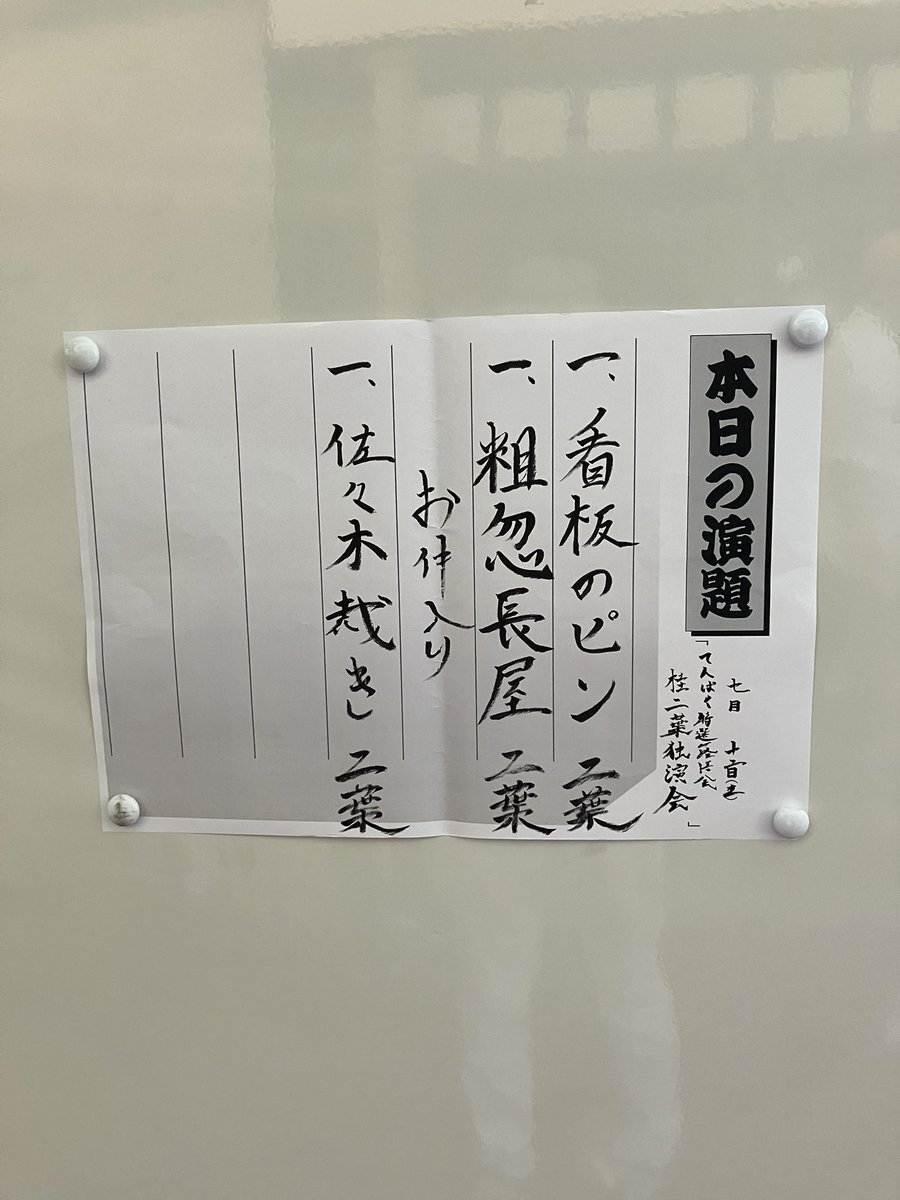 本日の演題
七月
「てんぱく特選落語会
桂二葉独演会」
一、看板のピン 二葉
一、粗忽長屋 二葉
お仲入り
一、佐々木裁き 二葉